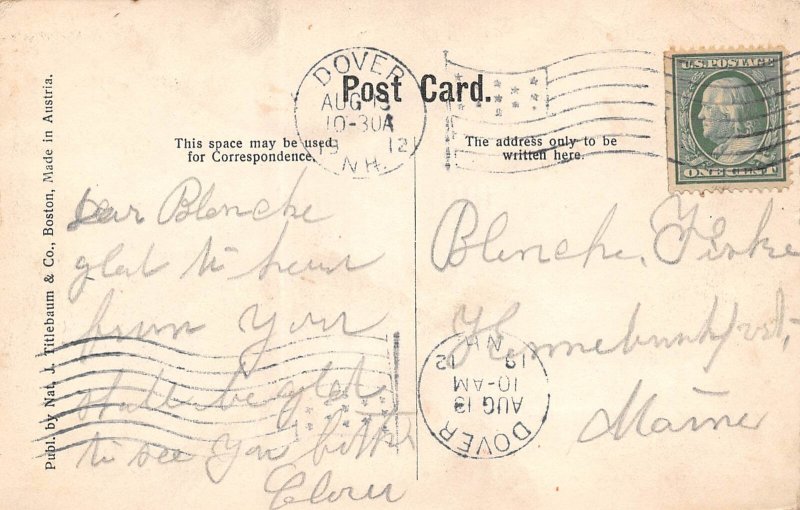 Post Card.
DOVER
AUG 13
10-30A
19 12
N.H.
U.S. POSTAGE
ONE CENT
This space may be used
for Correspondence.
The address only to be
written here.
Publ. by Nat. J. Titlebaum & Co., Boston, Made in Austria.
Dear Blenche
glat to hear
from You
shall be glat
to see You both
Blenche
Kennebunkport,
Maine
DOVER
AUG 13
10-AM
19 12
N.H.